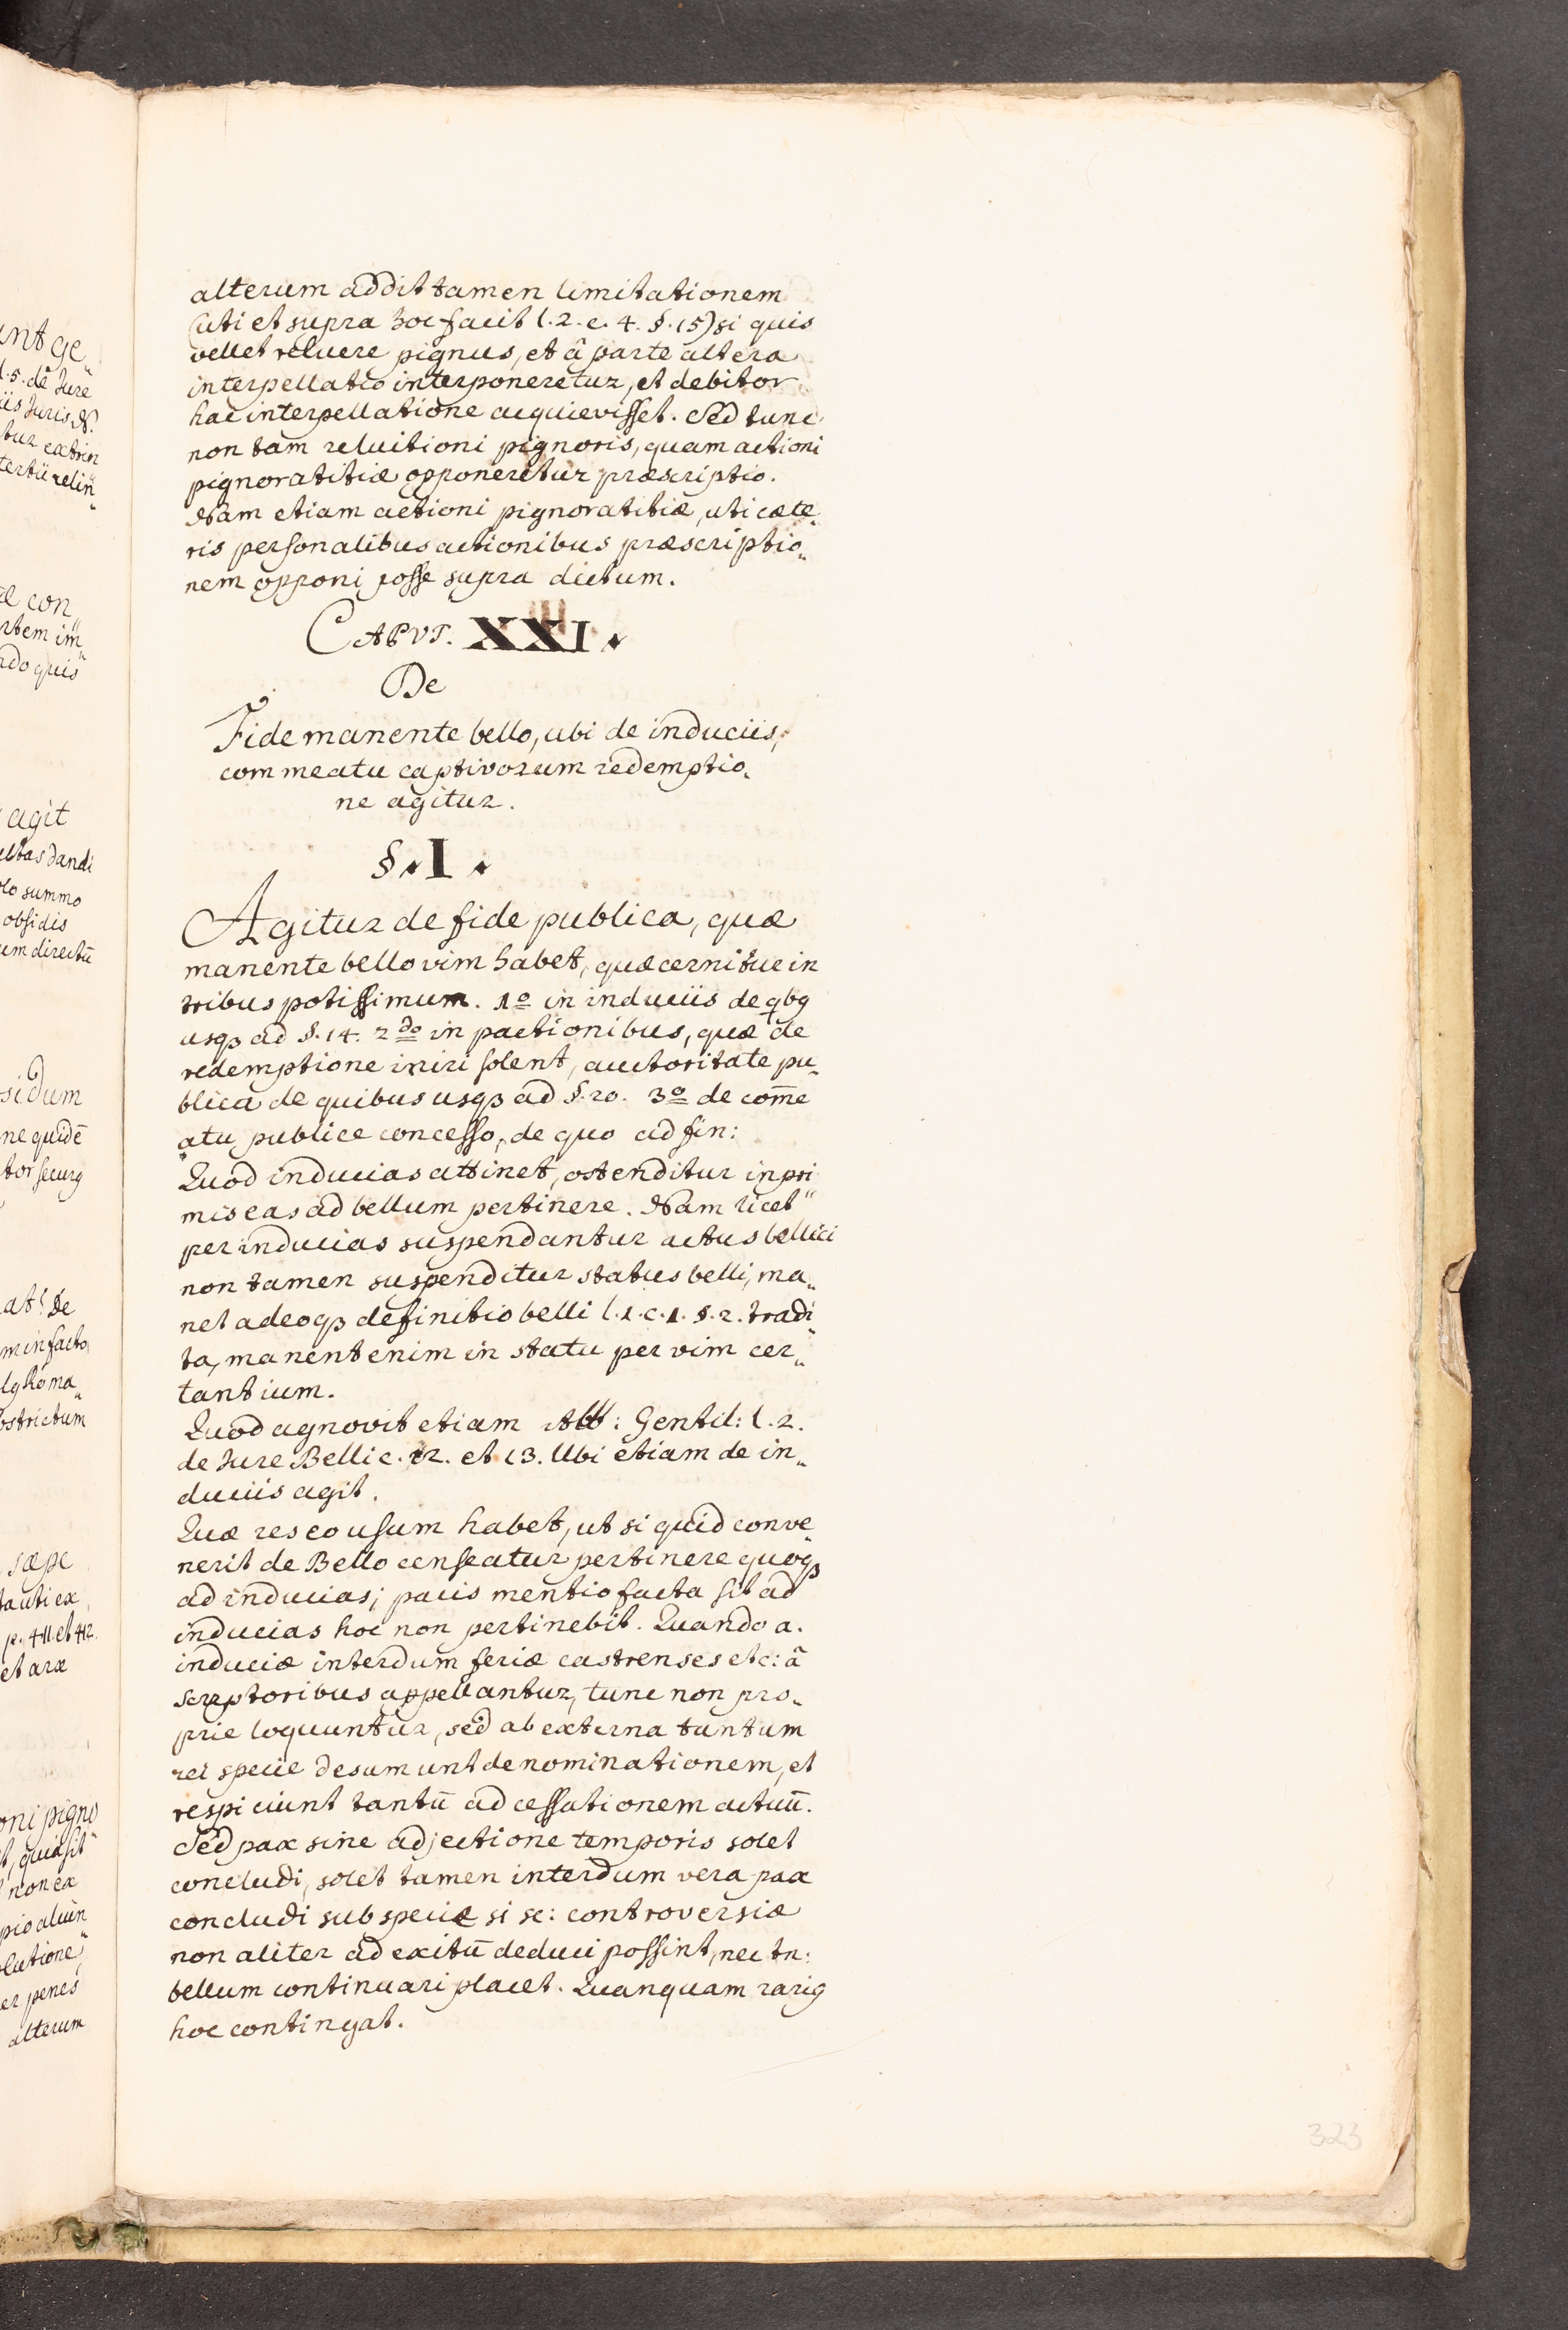 alterum addit tamen limitationem
(uti et supra hoc facit l. 2. c. 4. §. 15) si quis
vellet reluere pignus, et â parte altera
interpellatio interponeretur, et debitor
hac interpellatione acquievisset. Sed tunc
non tam reluitioni pignoris, quam actioni
pignoratitiæ opponeretur præscriptio.
Nam etiam actioni pignoratitiæ, uti cæte„
ris personalibus actionibus præscriptio„
nem opponi posse supra dictum.
CAPVT. XXI.
De
Fide manente bello, ubi de induciis,
commeatu captivorum redemptio„
ne agitur.
§. I.
Agitur de fide publica, quæ
manente bello vim habet, quæ cernitur in
tribus potissimum. 1o in induciis de qbꝰ
usqꝫ ad §. 14. 2do in pactionibus, quæ de
redemptione iniri solent, auctoritate pu„
blica de quibus usqꝫ ad §. 20. 3o de com̄e
„atu publice concesso, de quo ad fin:
Quod inducias attinet, ostenditur inpri
mis eas ad bellum pertinere. Nam licet„
per inducias suspendantur actus bellici
non tamen suspenditur status belli, ma„
net adeoqꝫ definitio belli l. 1. c. 1. §. 2. tradi„
ta, manent enim in statu per vim cer„
tantium.
Quod agnovit etiam Alb: Gentil: l. 2.
de Jure Belli c. 12. et 13. Ubi etiam de in„
duciis agit.
Quæ res eo usum habet, ut si quid conve„
nerit de Bello censeatur pertinere quoqꝫ
ad inducias; pacis mentio facta sit ad
inducias hoc non pertinebit. Quando a.
induciæ interdum feriæ castrenses etc: â
scriptoribus appellantur, tunc non pro„
prie loquuntur, sed ab externa tantum
rei specie desumunt denominationem, et
respiciunt tantū ad cessationem actuū.
Sed pax sine adjectione temporis solet
concludi, solet tamen interdum vera pax
concludi sub specie si sc: controversiæ
non aliter ad exitū deduci possint, nec tn:
bellum continuari placet. Quanquam rariꝰ
hoc contingat.
323